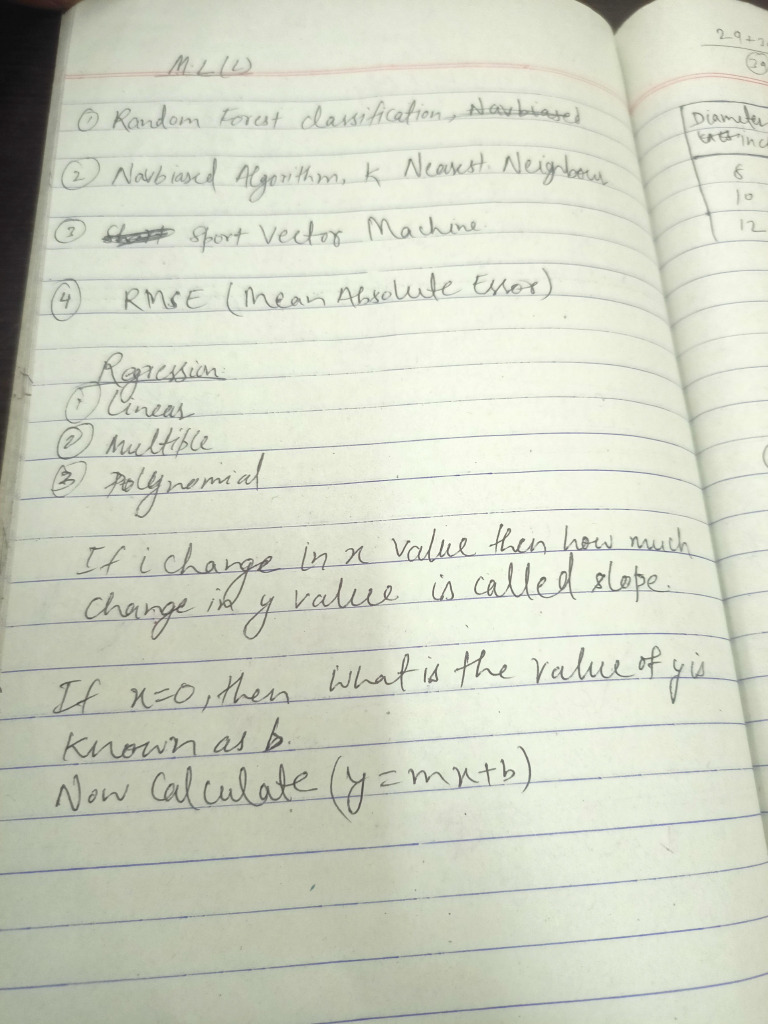 M.L(L)
① Random Forest classification, Navbiased
② Navbiased Algorithm, K Nearest Neighbour
③ sport Vector Machine
④ RMSE (Mean Absolute Error)
Regression
① Linear
② Multiple
③ Polynomial
If i change in x value then how much
change in y value is called slope.
If x=0, then what is the value of y is
known as b.
Now Calculate (y=mx+b)
29+
Diameter
inc
8
10
12